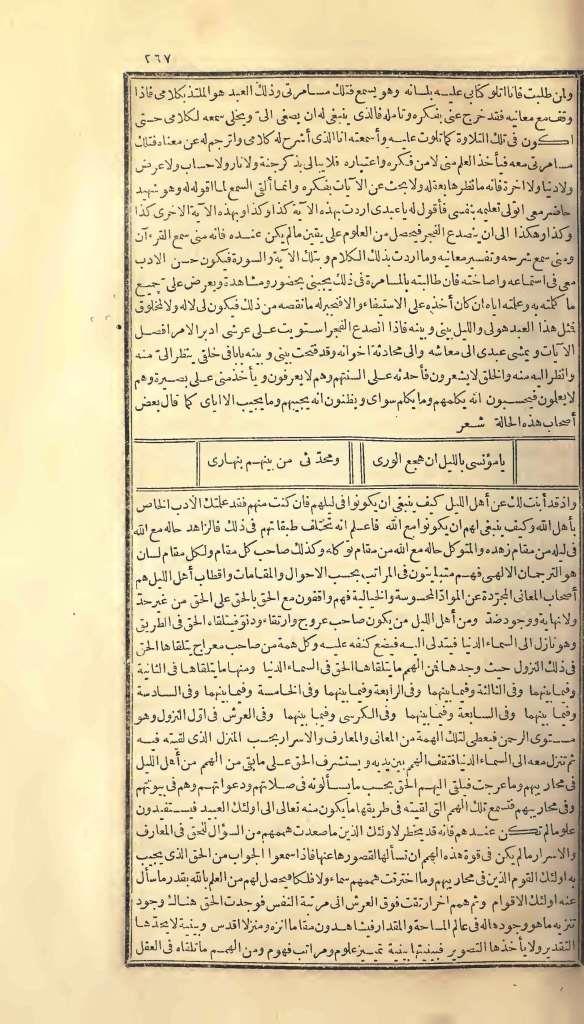 ٢٦٧
وان طلبت فانا اتلو كتابى عليه بلسانه وهو يسمع فتلك مسامرتى وذلك العبد هو الملتذ بكلامى فاذا
وقف مع معانيه فقد خرج عنى بفكره وتامله فالذى ينبغى له ان يصغى الىّ ويخلى سمعه لكلامى حتى
اكون فى تلك التلاوة كما تلوت عليه وأسمعته انا الذى أشرح له كلامى وأترجم له عن معناه فتلك
مسامرتى معه فيأخذ العلم منى لا من فكره واعتباره فلا يبالى بذكر جنة ولا نار ولا حساب ولا عرض
ولا دنيا ولا اخرة فانه ما نظرها بعقله ولا بحث عن الآيات بفكره وانما ألقى السمع لما اقوله له وهو شهيد
حاضر معى اتولى تعليمه بنفسى فأقول له يا عبدى اردت بهذه الآية كذا وكذا وبهذه الآية الاخرى كذا
وكذا وهكذا الى ان ينصدع الفجر فيحصل من العلوم على يقين ما لم يكن عنده فانه منى سمع القرءآن
ومنى سمع شرحه وتفسير معانيه وما اردت بذلك الكلام وبتلك الآية والسورة فيكون حسن الادب
معى فى استماعه واصاخته فان طالبته بالمسامرة فى ذلك يجيبنى بحضور ومشاهدة ويعرض على جميع
ما كلمته به وعلمته اياه فان كان أخذه على الاستيفاء والا فنجبر له ما نقصه من ذلك فيكون لى لا له ولا لمخلوق
فمثل هذا العبد هو لى والليل بينى وبينه فاذا انصدع الفجر استويت على عرشى ادبر الامر افصل
الآيات ويمشى عبدى الى معاشه والى محادثة اخوانه وقد فتحت بينى وبينه بابا فى خلقى ينظر الىّ منه
وانظر اليه منه والخلق لا يشعرون فأحدثه على السنتهم وهم لا يعرفون ويأخذ منى على بصيرة وهم
لا يعلمون فيحسبون انه يكلمهم وما يكلم سواى ويظنون انه يجيبهم وما يجيب الا اياى كما قال بعض
أصحاب هذه الحالة شعر
يا مؤنسى بالليل ان هجع الورى ومحدّثى من بينهم بنهارى
واذ قد أبنت لك عن أهل الليل كيف ينبغى ان يكونوا فى ليلهم فان كنت منهم فقد علمتك الادب الخاص
بأهل الله وكيف ينبغى لهم ان يكونوا مع الله فاعلم انه تختلف طبقاتهم فى ذلك فالزاهد حاله مع الله
فى ليله من مقام زهده والمتوكل حاله مع الله من مقام توكله وكذلك صاحب كل مقام ولكل مقام لسان
هو الترجمان الالهى فهم متباينون فى المراتب بحسب الاحوال والمقامات واقطاب أهل الليل هم
أصحاب المعانى المجرّدة عن الموادّ المحسوسة والخيالية فهم واقفون مع الحق بالحق على الحق من غير حدّ
ولا نهاية ووجود ضدّ ومن أهل الليل من يكون صاحب عروج وارتقاء ودنوّ فيتلقاه الحق فى الطريق
وهو نازل الى السماء الدنيا فيتدلى اليه فيضع كنفه عليه وكل همة من صاحب معراج يتلقاها الحق
فى ذلك النزول حيث وجدها فمن الهمم ما يتلقاها الحق فى السماء الدنيا ومنها ما يتلقاها فى الثانية
وفيما بينهما وفى الثالثة وفيما بينهما وفى الرابعة وفيما بينهما وفى الخامسة وفيما بينهما وفى السادسة
وفيما بينهما وفى السابعة وفيما بينهما وفى الكرسى وفيما بينهما وفى العرش فى اوّل النزول وهو
مستوى الرحمن فيعطى لتلك الهمة من المعانى والمعارف والاسرار بحسب المنزل الذى لقيته فيه
ثم تنزل معه الى السماء الدنيا فتقف الهمم بين يديه ويستشرف الحق على ما بقى من الهمم من أهل الليل
فى محاريبهم وما عرجت فيلقى اليهم الحق بحسب ما يسألونه فى صلاتهم ودعواتهم وهم فى بيوتهم
وفى محاريبهم فتسمع تلك الهمم التى لقيته فى طريقها ما يكون منه تعالى الى اولئك العبيد فيستفيدون
علوما لم تكن عندهم فانه قد يخطر لاولئك الذين ما صعدت هممهم من السؤال للحق فى المعارف
والاسرار ما لم يكن فى قوة هذه الهمم ان تسألها القصورها عنها فاذا سمعوا الجواب من الحق الذى يجيب
به اولئك القوم الذين فى محاريبهم وما اخترقت هممهم سماء ولا فلكا فيحصل لهم من العلم بالله بقدر ما سأل
عنه اولئك الاقوام وثم همم أخر ارتقت فوق العرش الى مرتبة النفس فوجدت الحق هناك وجود
تنزيه ما هو وجودها له فى عالم المساحة والمقدار فيشاهدون مقاما انزه ومنزلا اقدس وبينية لا يحدّها
التقدير ولا يأخذها التصوير فبينيتها بينية تمييز علوم ومراتب فهوم ومن الهمم ما تلقاه فى العقل